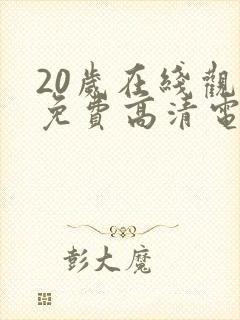 20歲在綫觀
免費高清電
彭大魔